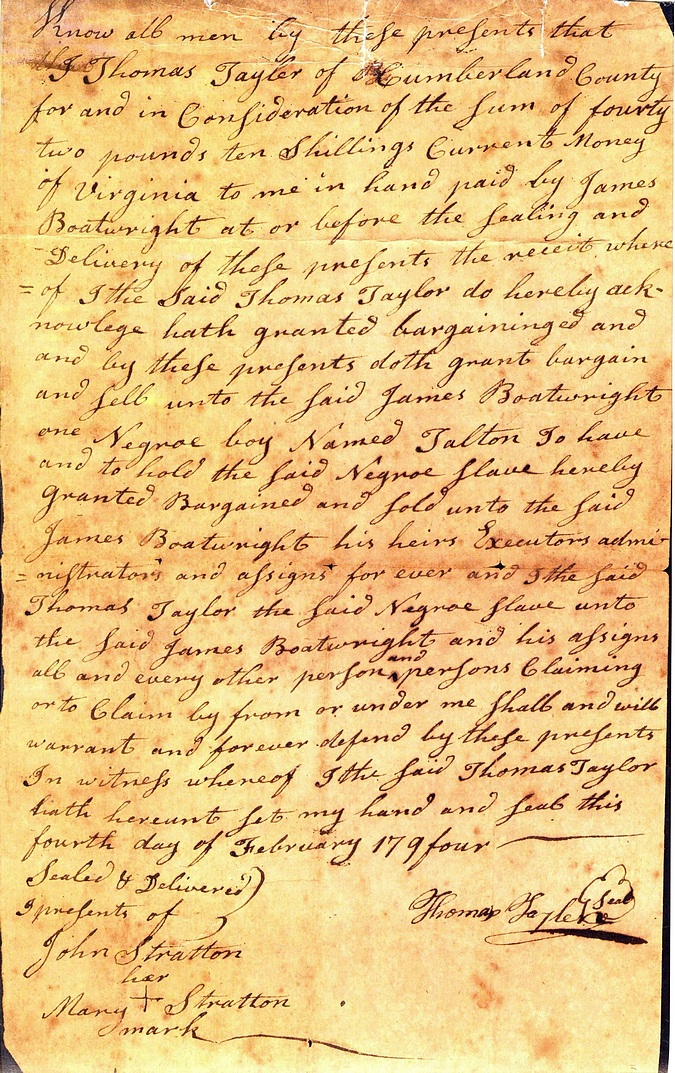 Know all men by these presents that
I Thomas Tayler of Cumberland County
for and in Consideration of the sum of fourty
two pounds ten Shillings Current Money
of Virginia to me in hand paid by James
Boatwright at or before the sealing and
Delivery of these presents the receit where
=of I the Said Thomas Taylor do hereby ack-
nowlege hath granted bargaininged and
and by these presents doth grant bargain
and sell unto the said James Boatwright
one Negroe boy Named Talton To have
and to hold the said Negroe slave hereby
Granted Bargained and sold unto the said
James Boatwright his heirs Executors admi-
=nistrators and assigns for ever and I the said
Thomas Taylor the said Negroe slave unto
the said James Boatwright and his assigns
all and every other person and persons Claiming
or to Claim by from or under me shall and will
warrant and forever defend by these presents
In witness whereof I the said Thomas Taylor
hath hereunt set my hand and seal this
fourth day of February 179four
Sealed & Delivered
I presents of
Thomas Tayler Seal
John Stratton
her
Mary + Stratton
mark